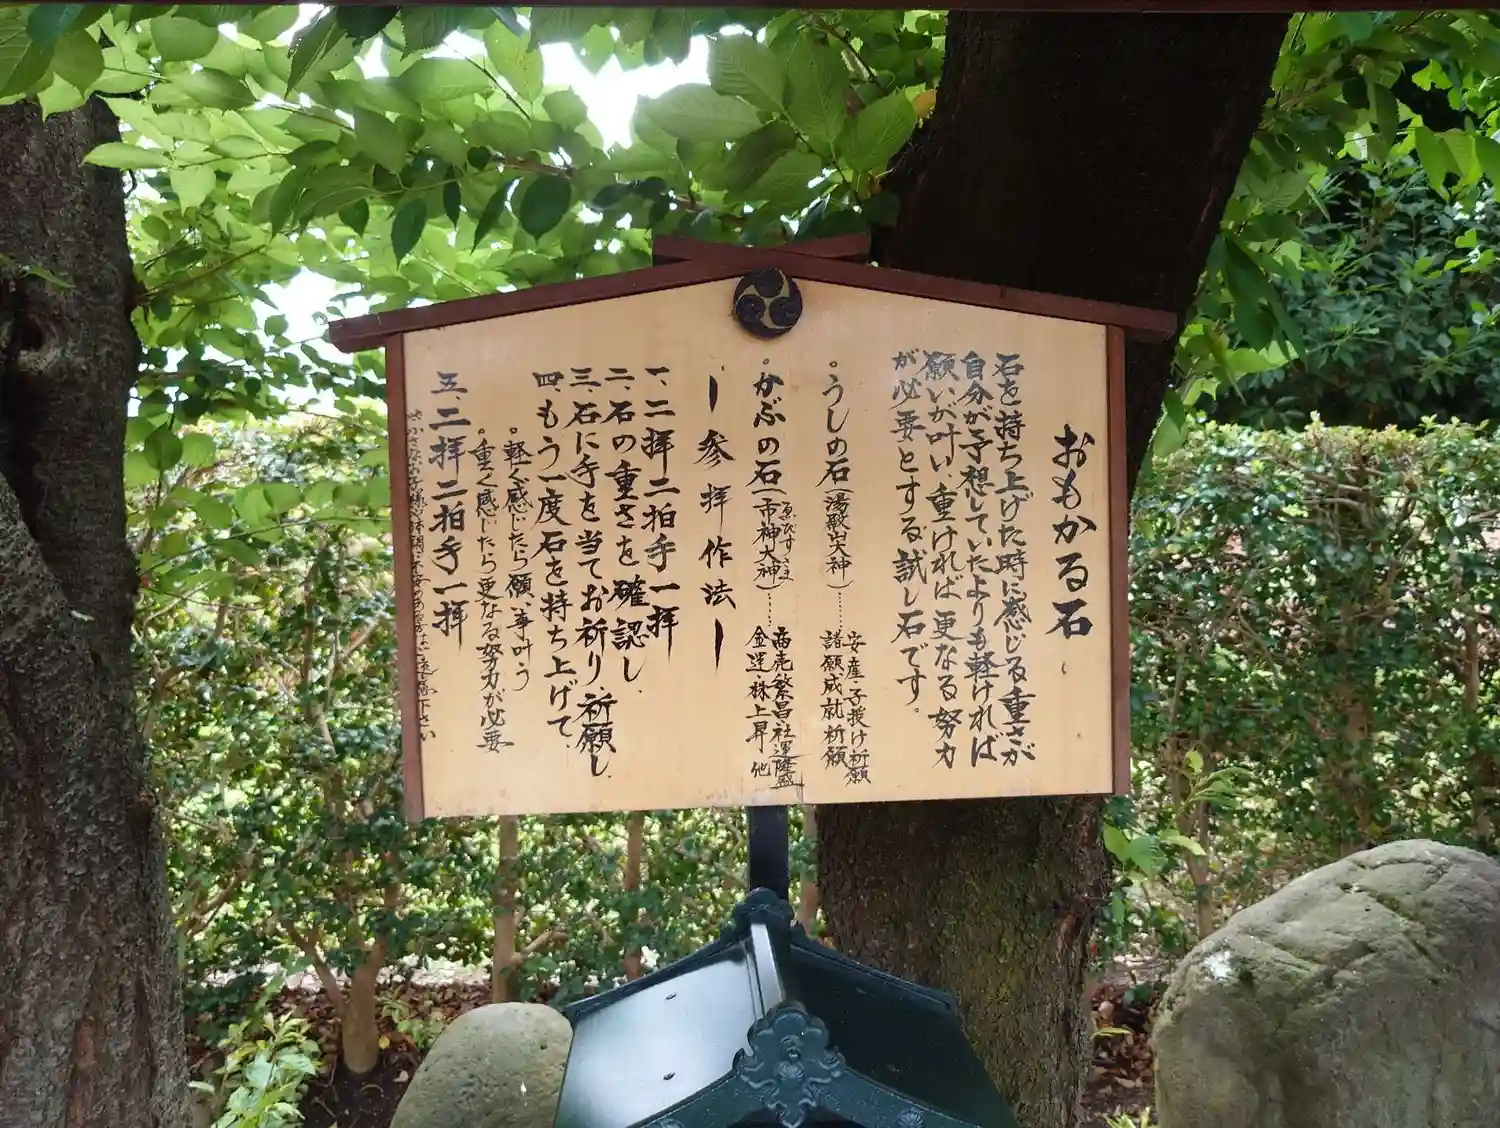 おもかる石
石を持ち上げた時に感じる重さが
自分が予想していたよりも軽ければ
願いが叶い、重ければ更なる努力
が必要とする試し石です。
。うしの石(湯殿山大神)……安産・子授け祈願
諸願成就祈願
。かぶの石(市神大神)……商売繁昌・社運隆盛
ゑびすさま
金運・株上昇 他
ー参拝作法ー
一、二拝二拍手一拝
二、石の重さを確認し、
三、石に手を当てお祈り、祈願し、
四、もう一度石を持ち上げて、
。軽く感じたら願い事叶う
。重く感じたら更なる努力が必要
五、二拝二拍手一拝